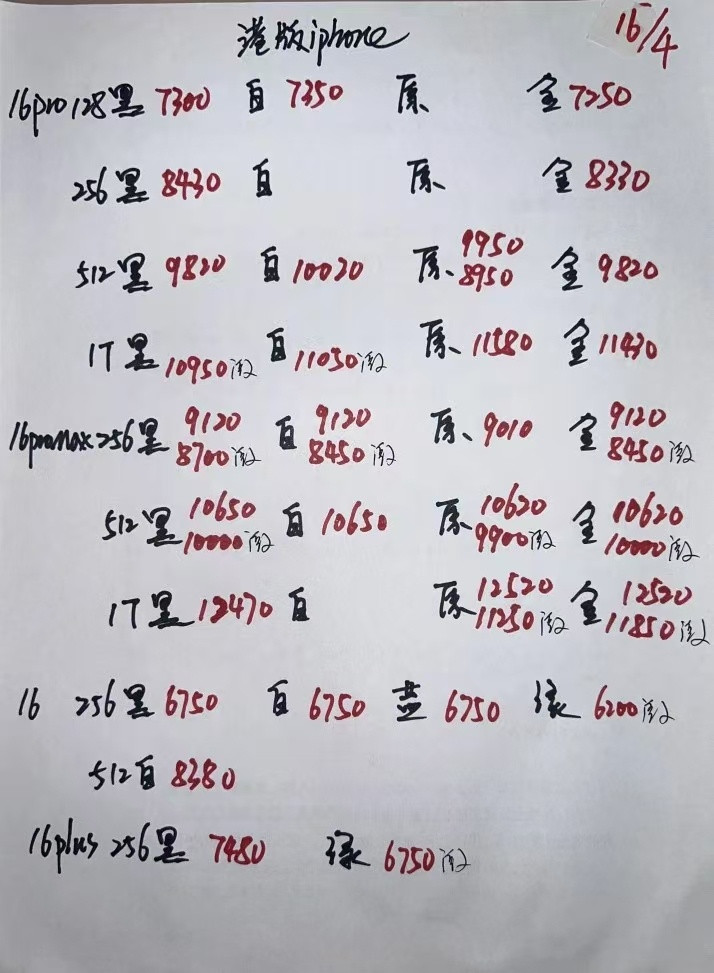 港版iphone 16/4
16pro 128黑 7300 白 7350 原 金 7250
256黑 8430 白 原 金 8330
512黑 9820 白 10020 原 9950 8950 金 9820
1T黑 10950激 白 11050激 原 11580 金 11430
16promax 256黑 9120 8700激 白 9120 8450激 原 9010 金 9120 8450激
512黑 10650 10000激 白 10650 原 10620 9900激 金 10620 10000激
1T黑 12470 白 原 12520 11250激 金 12520 11850激
16 256黑 6750 白 6750 蓝 6750 绿 6200激
512白 8380
16plus 256黑 7480 绿 6750激